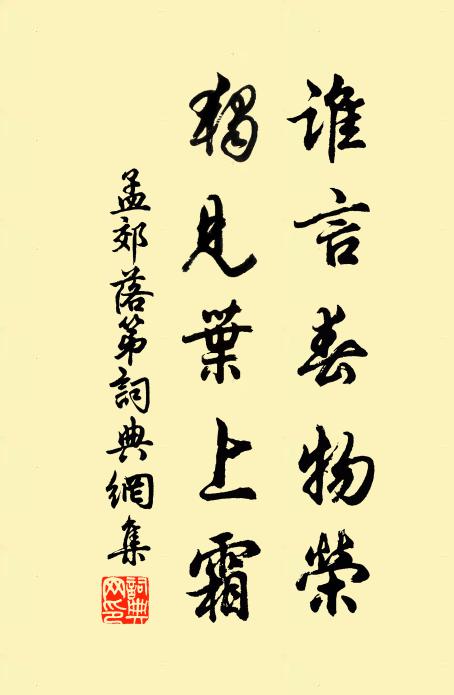 誰言春物榮
獨見葉上霜
孟郊落第詞典網集
詞典網印